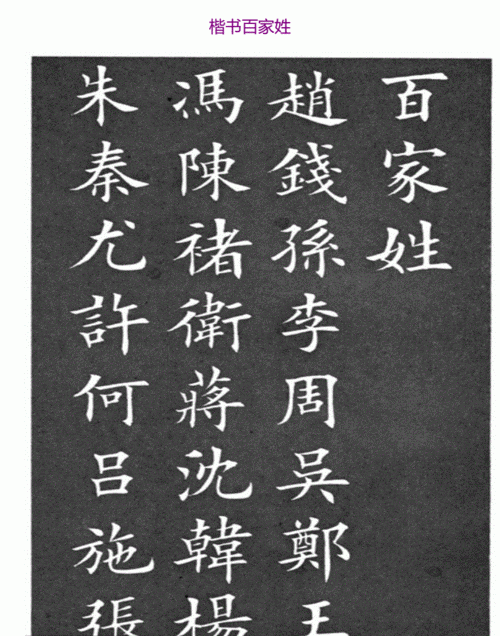 楷书百家姓
百家姓
趙錢孫李周吳鄭王
馮陳褚衛蔣沈韓楊
朱秦尤許何吕施張